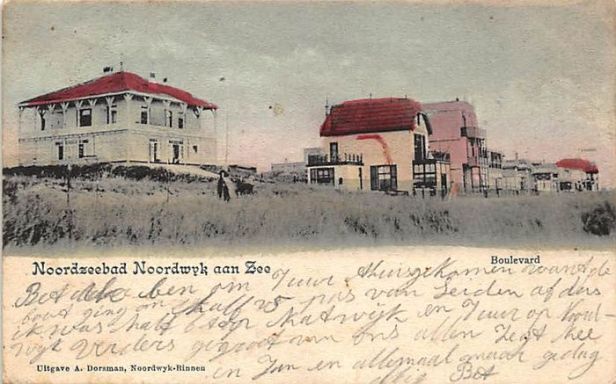 Noordzeebad Noordwyk aan Zee
Boulevard
ben om 7 uur thuisgekomen want de
boot ging om half 5 pas van Leiden af dus
ik was half 6 op Katwijk en 7 uur op Noord-
wijk verders gegroet van ons allen Zegt hee
en Jan en allemaal maar gedag
Bet
Uitgave A. Dorsman, Noordwyk-Binnen